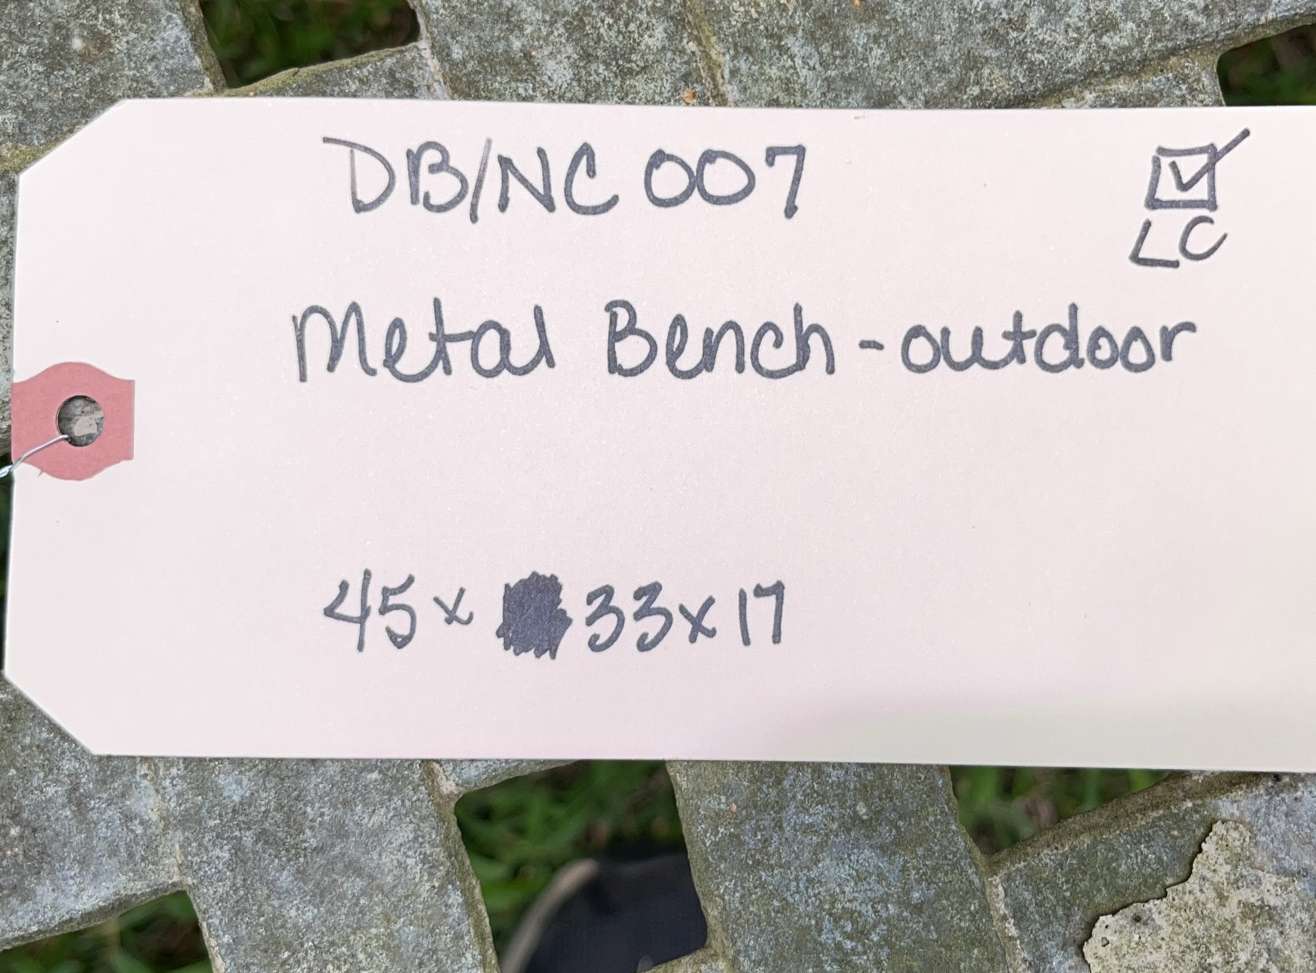 DB/NC 007
☑
LC
Metal Bench - outdoor
45 x 33 x 17